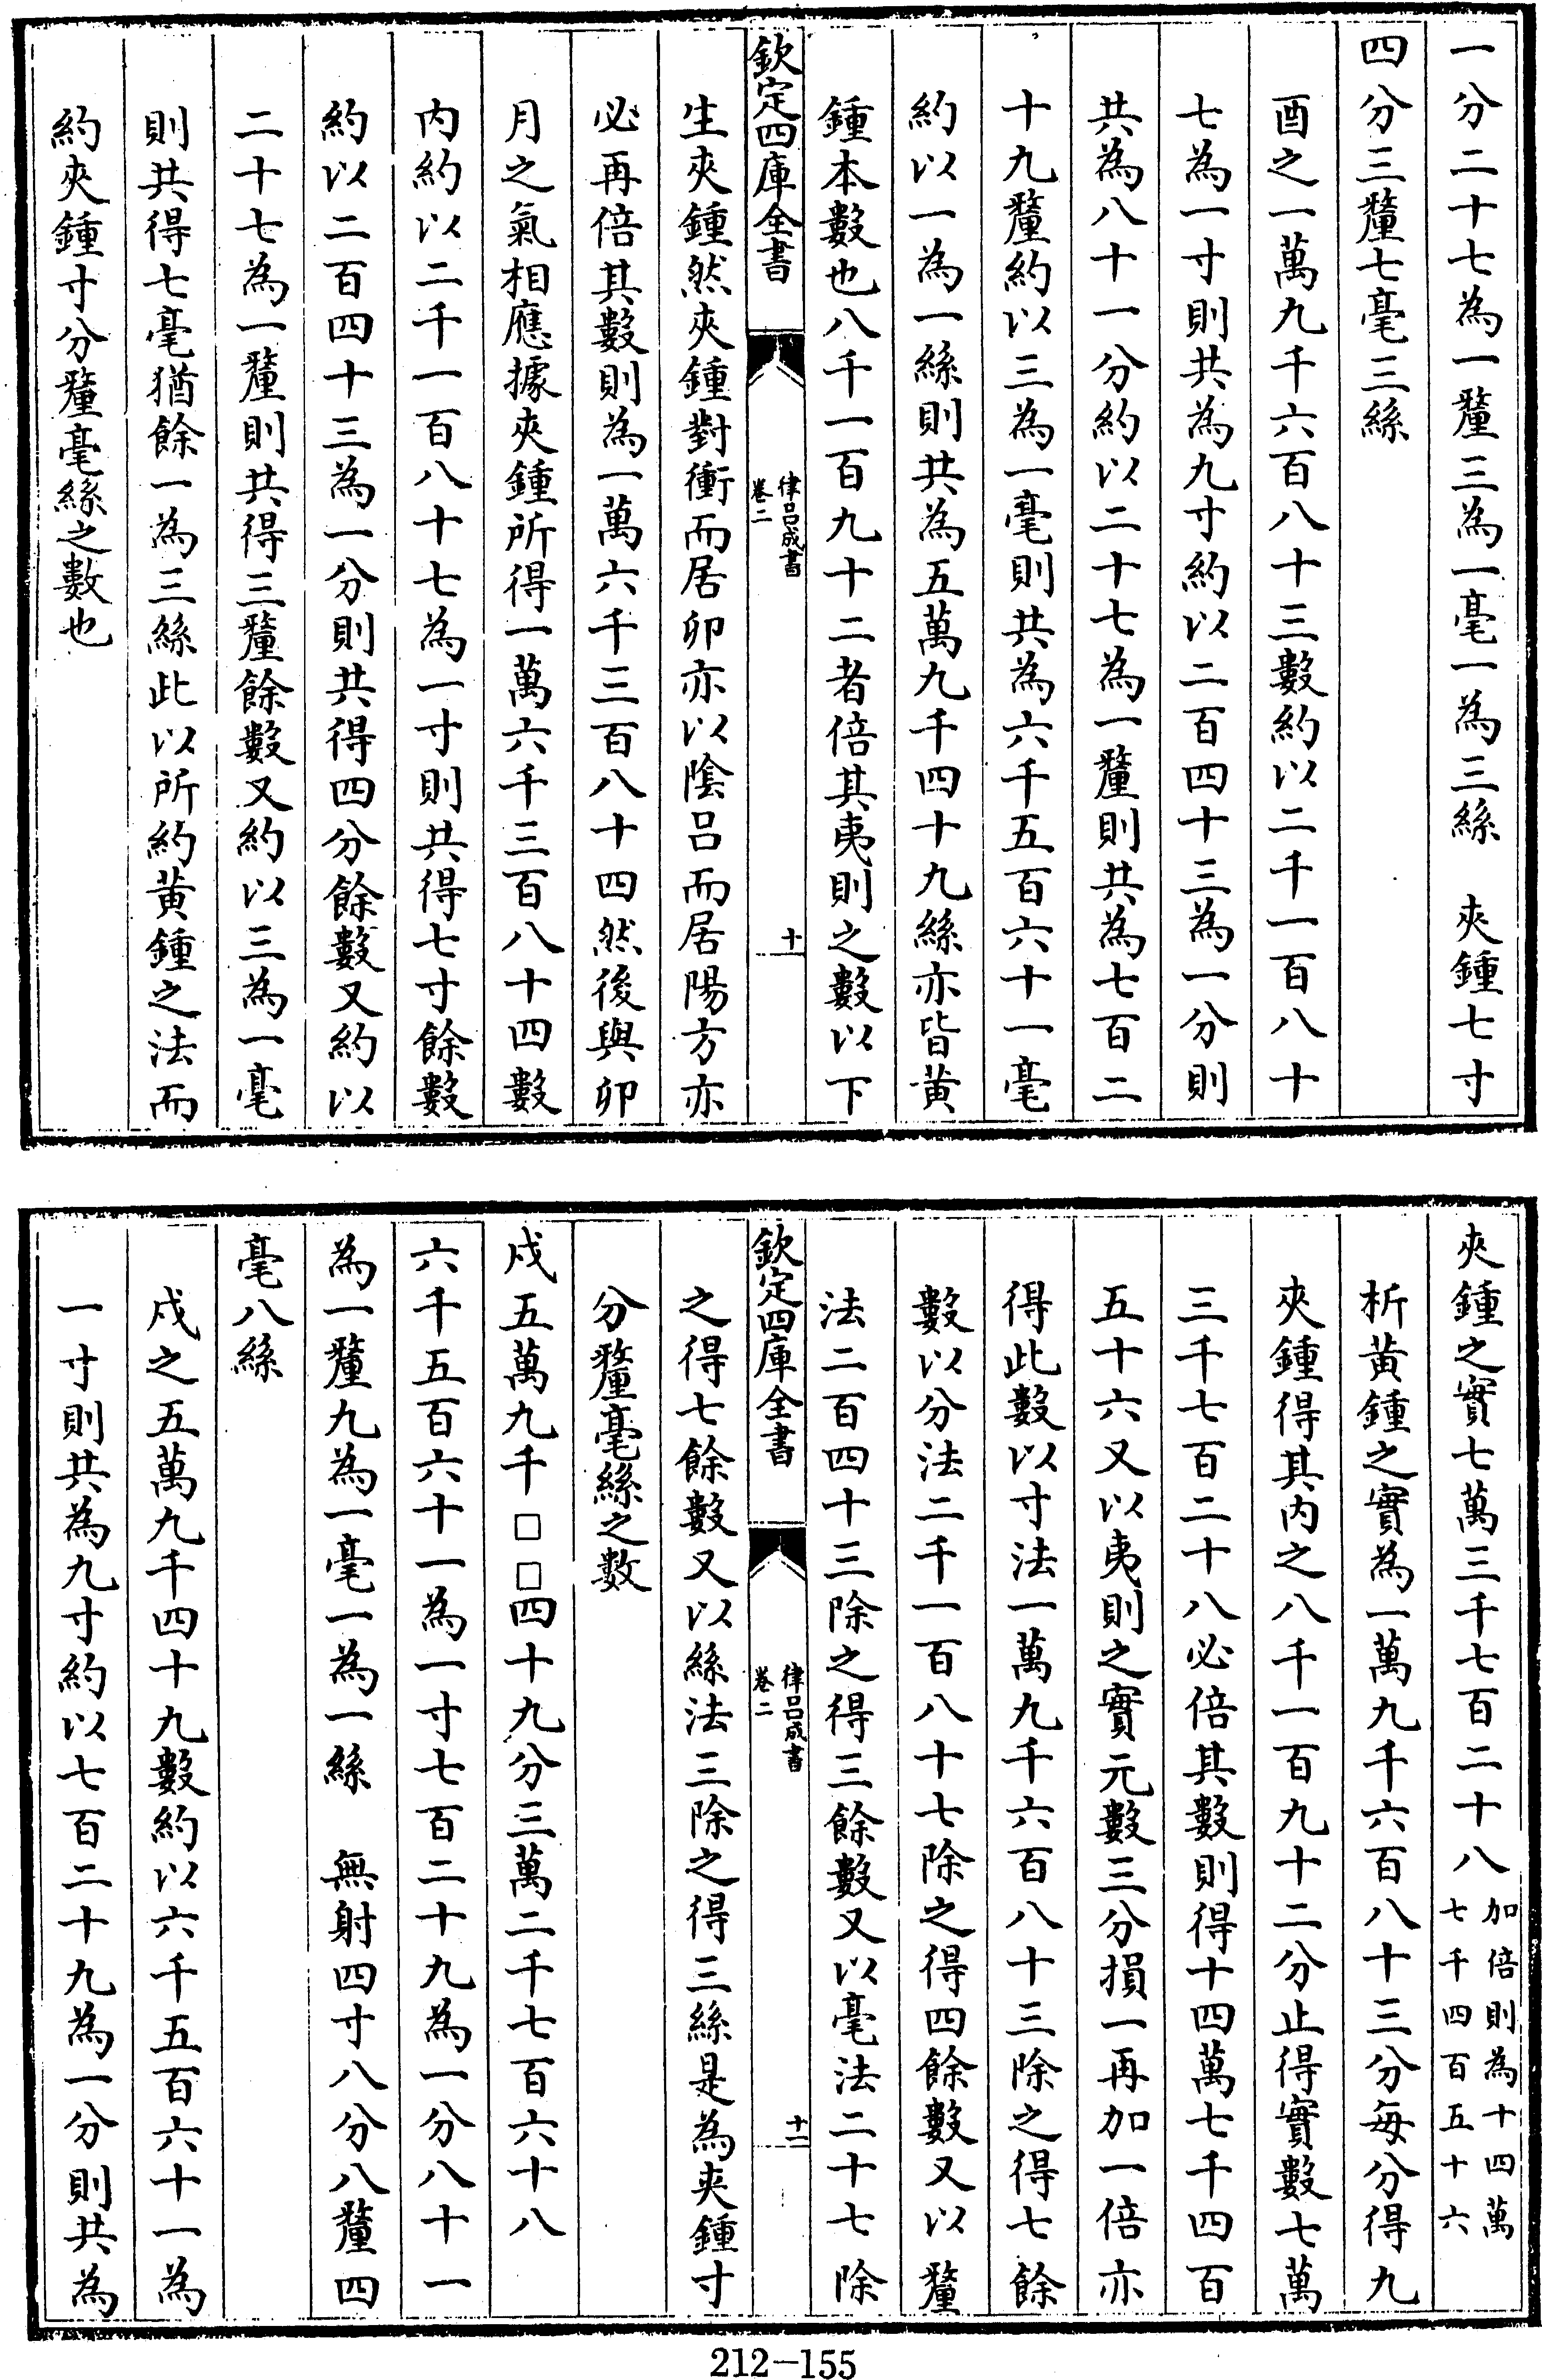 一分二十七為一釐三為一毫一為三絲　夾鍾七寸
四分三釐七毫三絲
酉之一萬九千六百八十三數約以二千一百八十
七為一寸則共為九寸約以二百四十三為一分則
共為八十一分約以二十七為一釐則共為七百二
十九釐約以三為一毫則共為六千五百六十一毫
約以一為一絲則共為五萬九千四十九絲亦皆黃
鍾本數也八千一百九十二者倍其夷則之數以下
欽定四庫全書
律呂成書
卷二
十
生夾鍾然夾鍾對衝而居卯亦以陰呂而居陽方亦
必再倍其數則為一萬六千三百八十四然後與卯
月之氣相應據夾鍾所得一萬六千三百八十四數
内約以二千一百八十七為一寸則共得七寸餘數
約以二百四十三為一分則共得四分餘數又約以
二十七為一釐則共得三釐餘數又約以三為一毫
則共得七毫猶餘一為三絲此以所約黃鍾之法而
約夾鍾寸分釐毫絲之數也
夾鍾之實七萬三千七百二十八加倍則為十四萬
七千四百五十六
析黃鍾之實為一萬九千六百八十三分每分得九
夾鍾得其内之八千一百九十二分止得實數七萬
三千七百二十八必倍其數則得十四萬七千四百
五十六又以夷則之實元數三分損一再加一倍亦
得此數以寸法一萬九千六百八十三除之得七餘
數以分法二千一百八十七除之得四餘數又以釐
法二百四十三除之得三餘數又以毫法二十七除
欽定四庫全書
律呂成書
卷二
十一
之得七餘數又以絲法三除之得三絲是為夾鍾寸
分釐毫絲之数
戍五萬九千□□四十九分三萬二千七百六十八
六千五百六十一為一寸七百二十九為一分八十一
為一釐九為一毫一為一絲　無射四寸八分八釐四
毫八絲
戍之五萬九千四十九數約以六千五百六十一為
一寸則共為九寸約以七百二十九為一分則共為
212-155